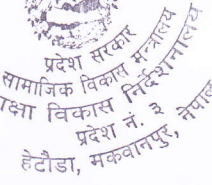 प्रदेश सरकार
सामाजिक विकास मन्त्रालय
विकास निर्देशनालय
प्रदेश नं. ३
हेटौंडा, मकवानपुर, नेपाल